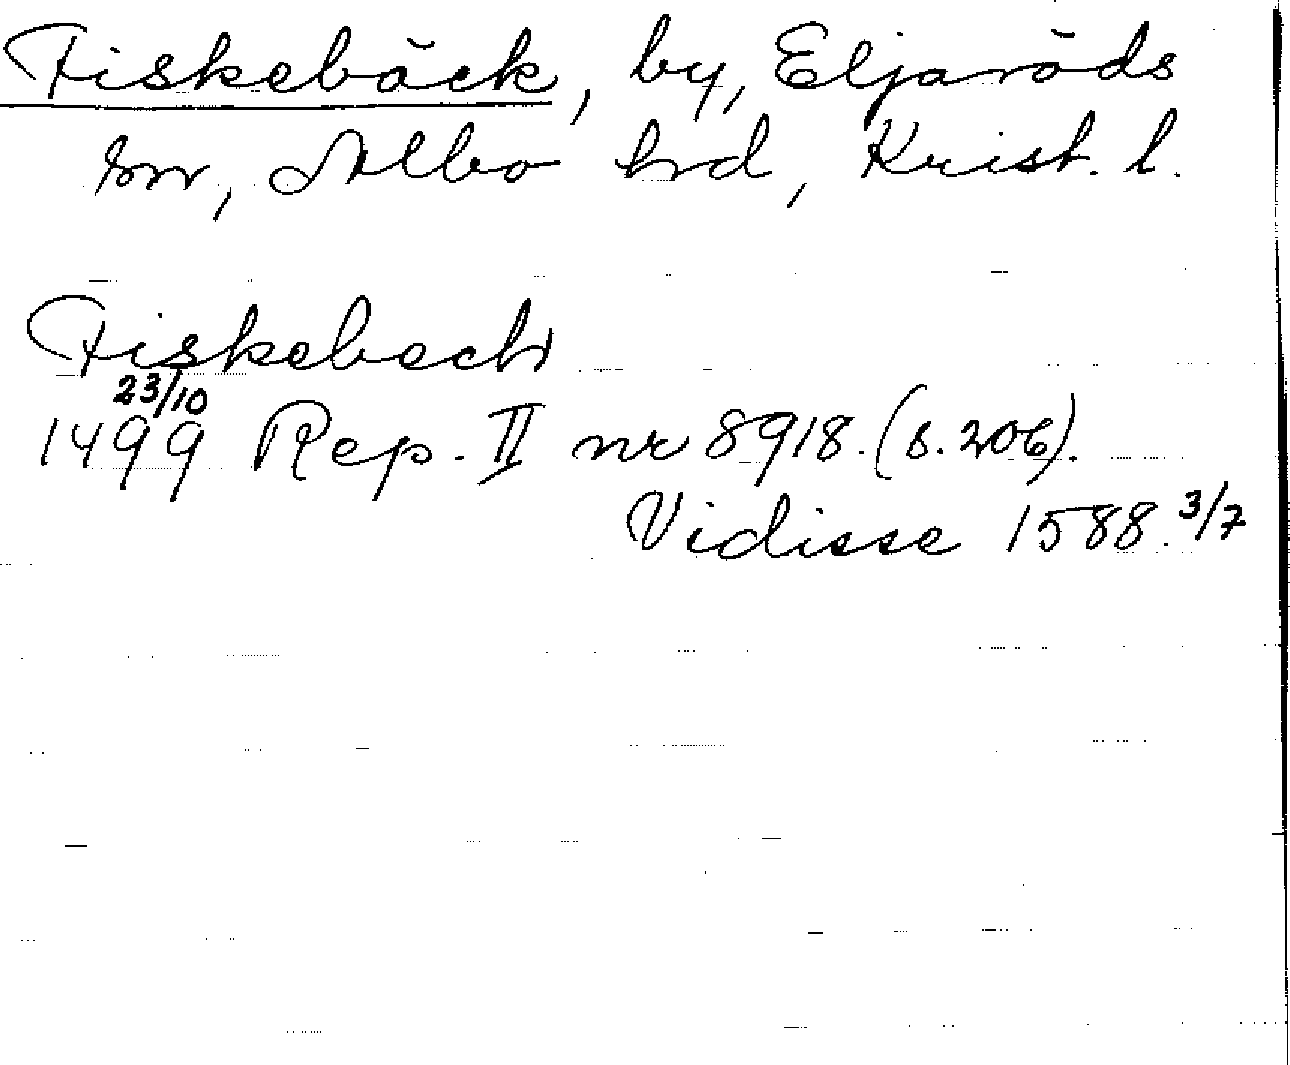 Fiskebäck, by, Eljaröds
sn, Albo hd, Krist. l.
Fiskebech
23/10
1499 Rep. II nr 8918. (s. 206).
Vidisse 1588. 3/7